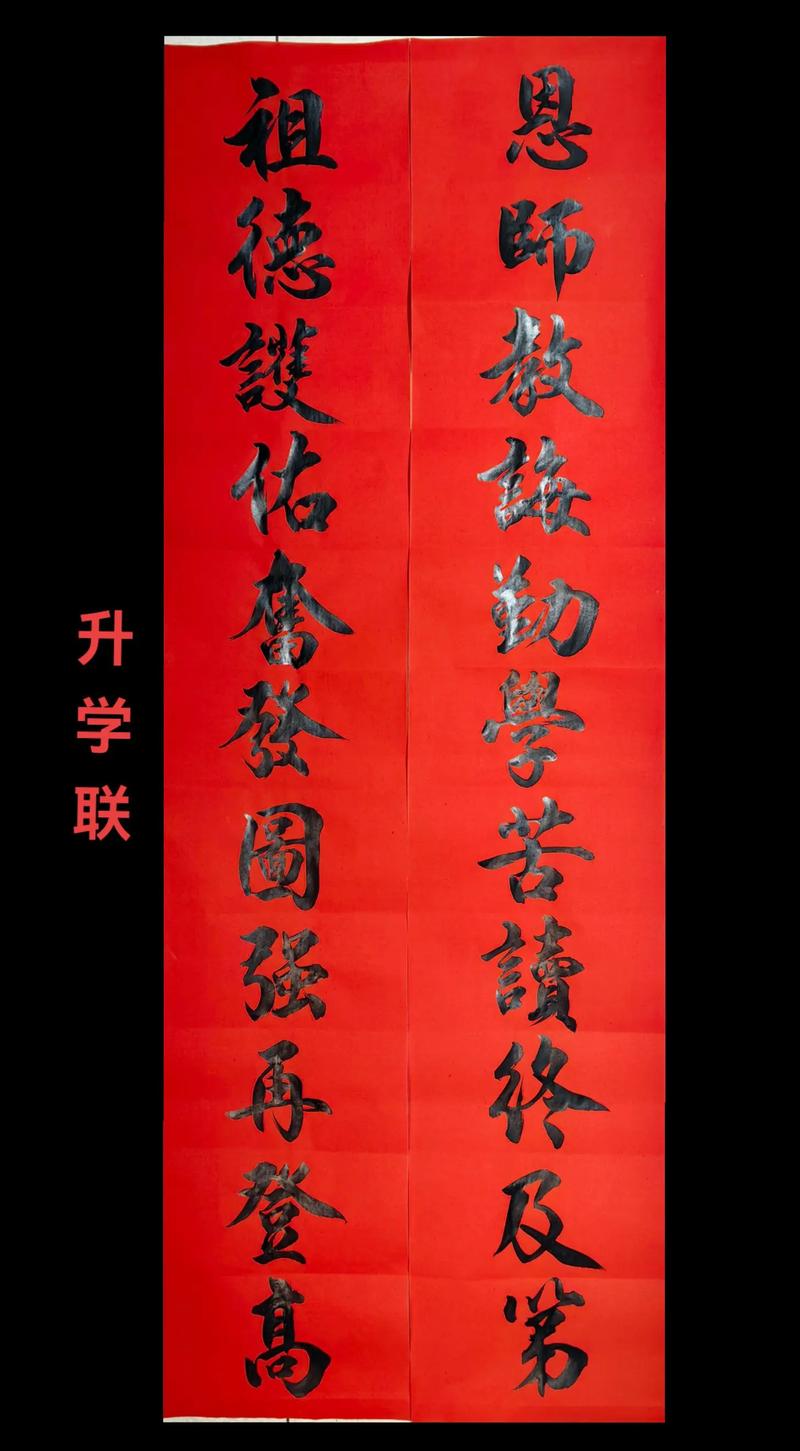 恩師教誨勤學苦讀終及第
祖德護佑奮發圖强再登高
升学联